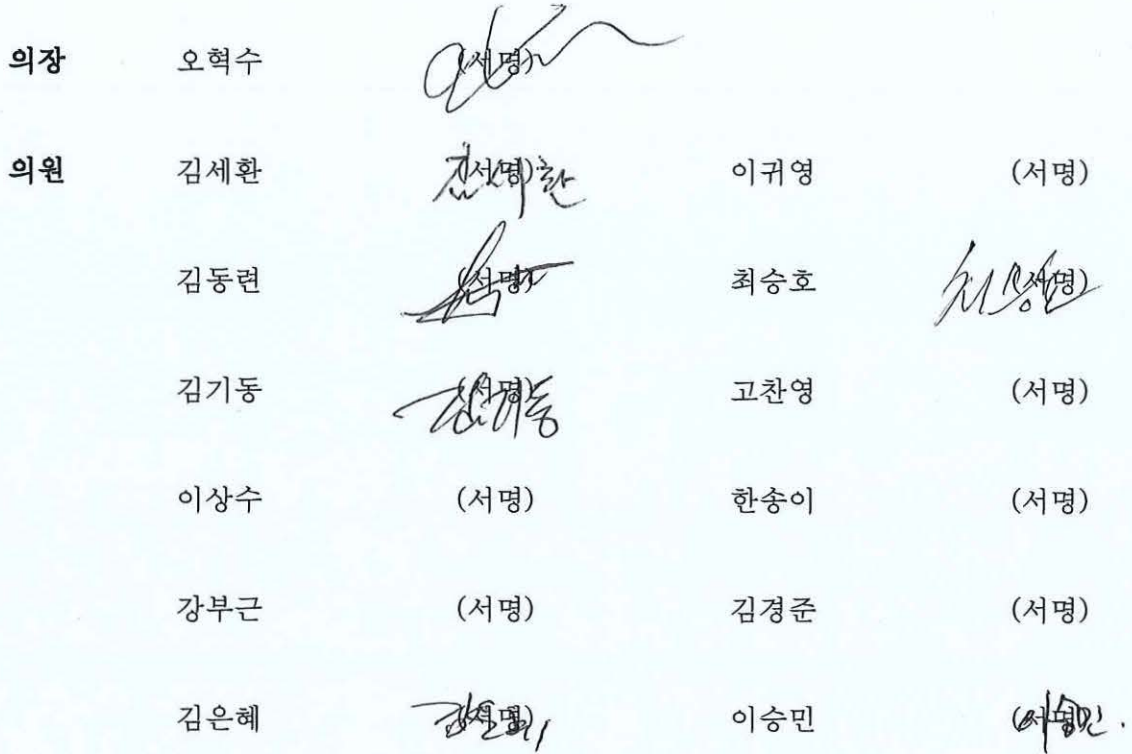 의장 오혁수 (서명)
의원 김세환 (서명) 이귀영 (서명)
김동련 (서명) 최승호 (서명)
김기동 (서명) 고찬영 (서명)
이상수 (서명) 한송이 (서명)
강부근 (서명) 김경준 (서명)
김은혜 (서명) 이승민 (서명)